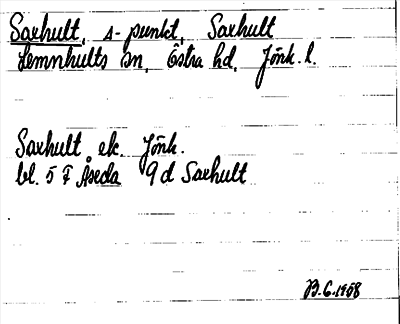 Saxhult, s-punkt, Saxhult
Lemnhults sn, Östra hd, Jönk. l.
Saxhult ek. Jönk.
bl. 5 F Åseda 9 d Saxhult
B. G. 1958